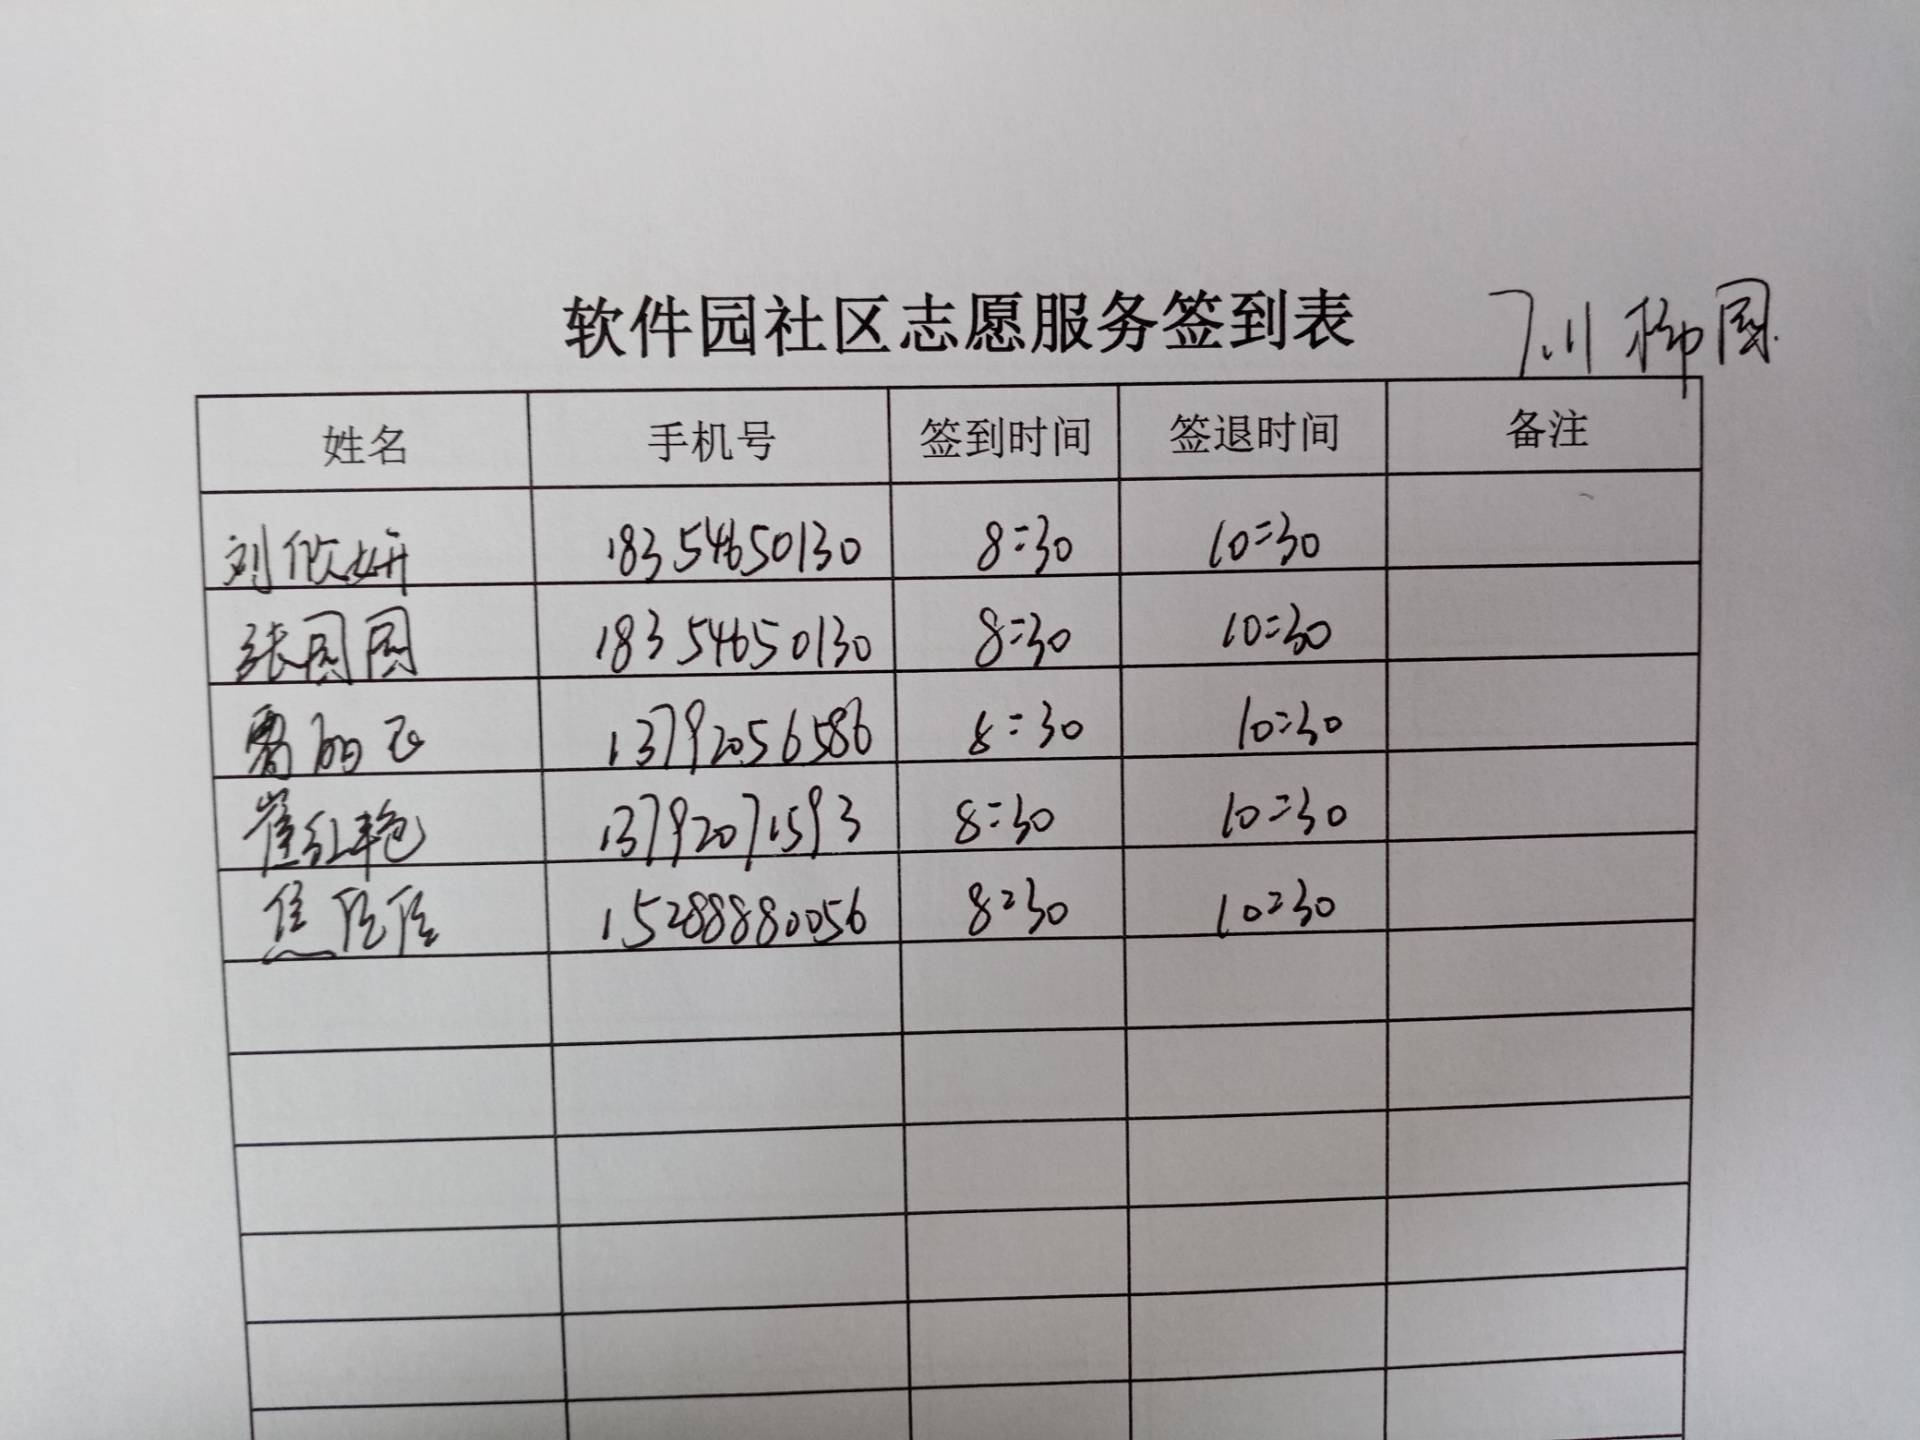 软件园社区志愿服务签到表 7.11 柳园
姓名 手机号 签到时间 签退时间 备注
刘攸妍 18354650130 8:30 10:30
张园园 18354650130 8:30 10:30
贾丽飞 13792056586 8:30 10:30
崔红艳 13792071593 8:30 10:30
焦 15288880056 8:30 10:30